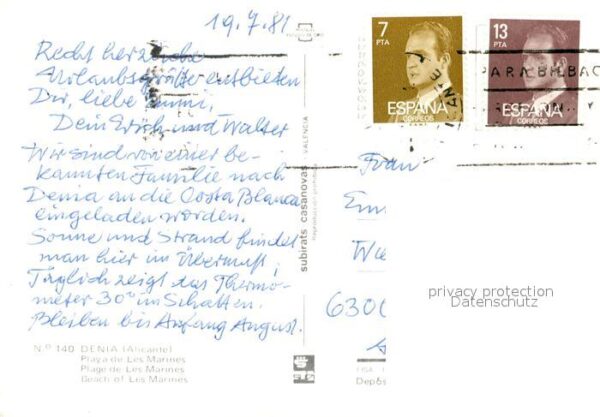 19.7.81
Recht herzliche
Urlaubsgrüße entbieten
Dir, liebe Emmi,
Dein Erich und Walter
Wir sind von einer be-
kannten Familie nach
Denia an die Costa Blanca
eingeladen worden.
Sonne und Strand findet
man hier im Übermaß;
Täglich zeigt das Thermo-
meter 30° im Schatten.
Bleiben bis Anfang August.
N.º 140 DENIA (Alicante)
Playa de Les Marines
Plage de Les Marines
Beach of Les Marines
subirats casanovas VALENCIA
7
PTA
ESPAÑA
CORREOS
13
PTA
ESPAÑA
CORREOS
PARA BILBAO
Frau
Em
630
privacy protection
Datenschutz
FISA